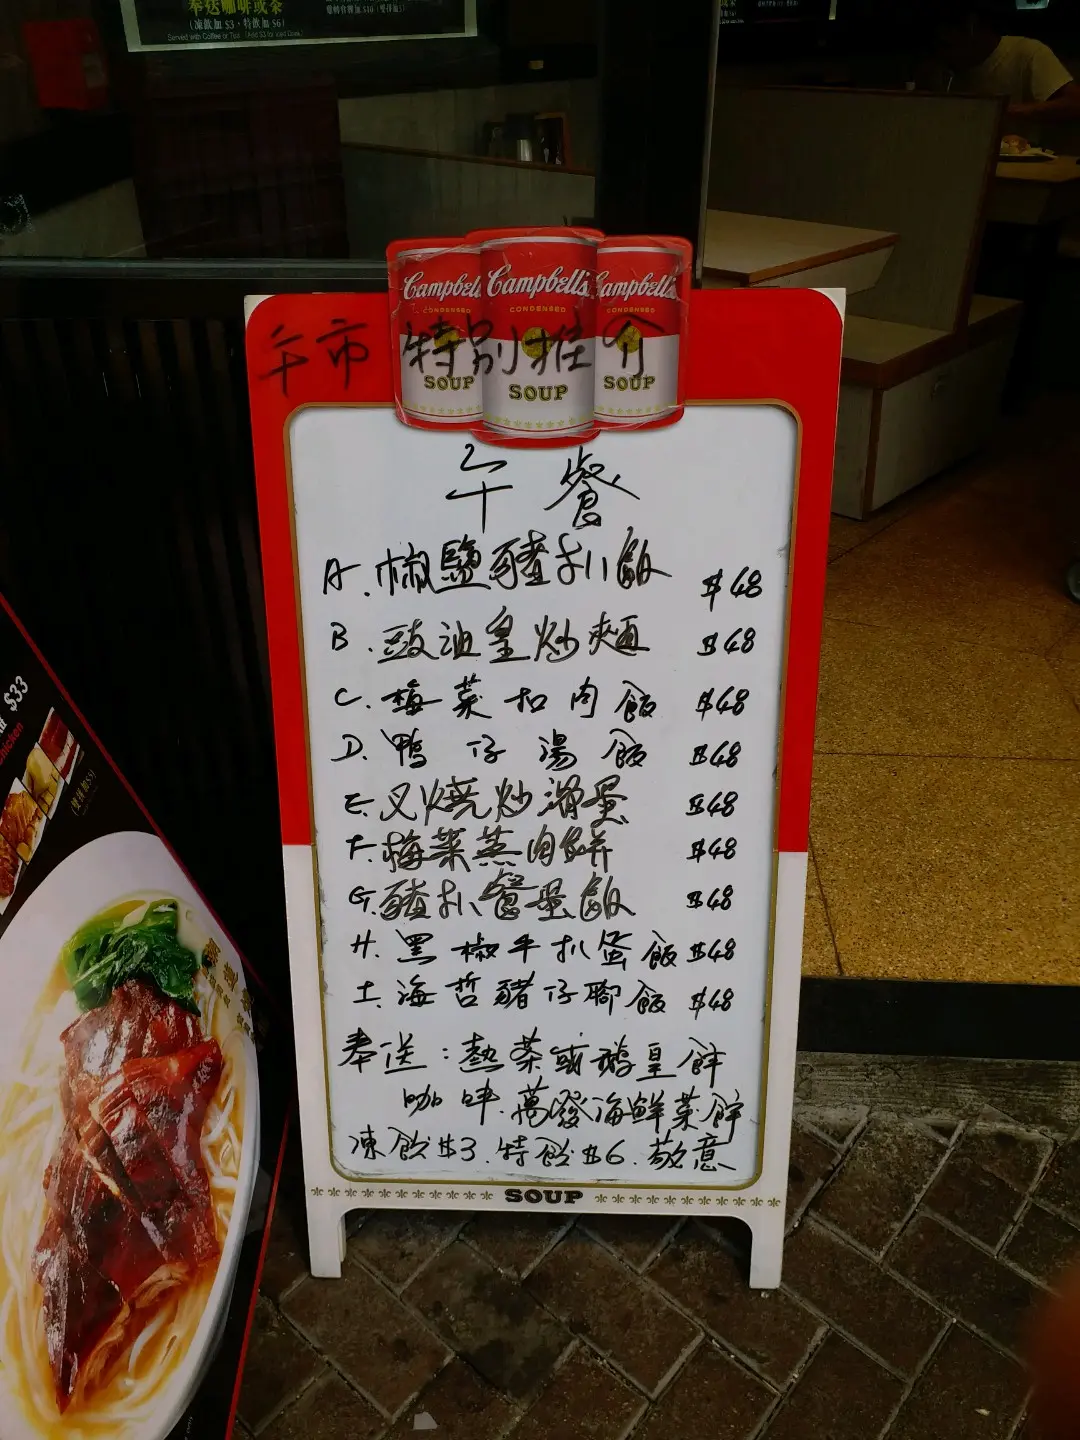 奉送咖啡或茶
(凍飲加 $3，特飲加 $6)
Served with Coffee or Tea
Campbell's Campbell's Campbell's
CONDENSED CONDENSED CONDENSED
午市 特別推介
SOUP SOUP SOUP
午餐
A. 椒鹽豬扒飯 $48
B. 豉油皇炒麵 $48
C. 梅菜扣肉飯 $48
D. 鴨仔湯飯 $48
E. 叉燒炒滑蛋 $48
F. 梅菜蒸肉餅 $48
G. 豬扒餐蛋飯 $48
H. 黑椒牛扒蛋飯 $48
I. 海哲豬仔腳飯 $48
奉送：熱茶或
咖啡.
凍飲$3.特飲$6.敬意
SOUP
$33